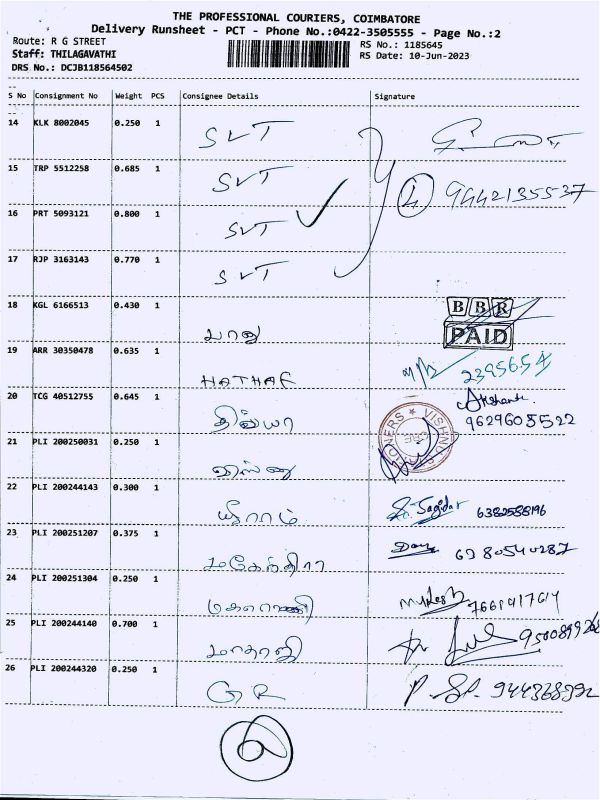 THE PROFESSIONAL COURIERS, COIMBATORE
Delivery Runsheet - PCT - Phone No.:0422-3505555 - Page No.:2
Route: R G STREET RS No.: 1185645
Staff: THILAGAVATHI RS Date: 10-Jun-2023
DRS No.: DCJB118564502
S No Consignment No Weight PCS Consignee Details Signature
14 KLK 8002045 0.250 1 SVT
15 TRP 5512258 0.685 1 SVT 9442135537
16 PRT 5093121 0.800 1 SVT
17 RJP 3163143 0.770 1 SVT
18 KGL 6166513 0.430 1 பானு BBR PAID
19 ARR 30350478 0.635 1 HATHAF 2395654
20 TCG 40512755 0.645 1 திவ்யா 9629605522
21 PLI 200250031 0.250 1 விஸ்ணு VISHNU
22 PLI 200244143 0.300 1 ஸ்ரீராம் 6382588196
23 PLI 200251207 0.375 1 மகேந்திரா 6380540287
24 PLI 200251304 0.250 1 மகாராணி Mukesh
25 PLI 200244140 0.700 1 மாதாஜி
26 PLI 200244320 0.250 1 GR